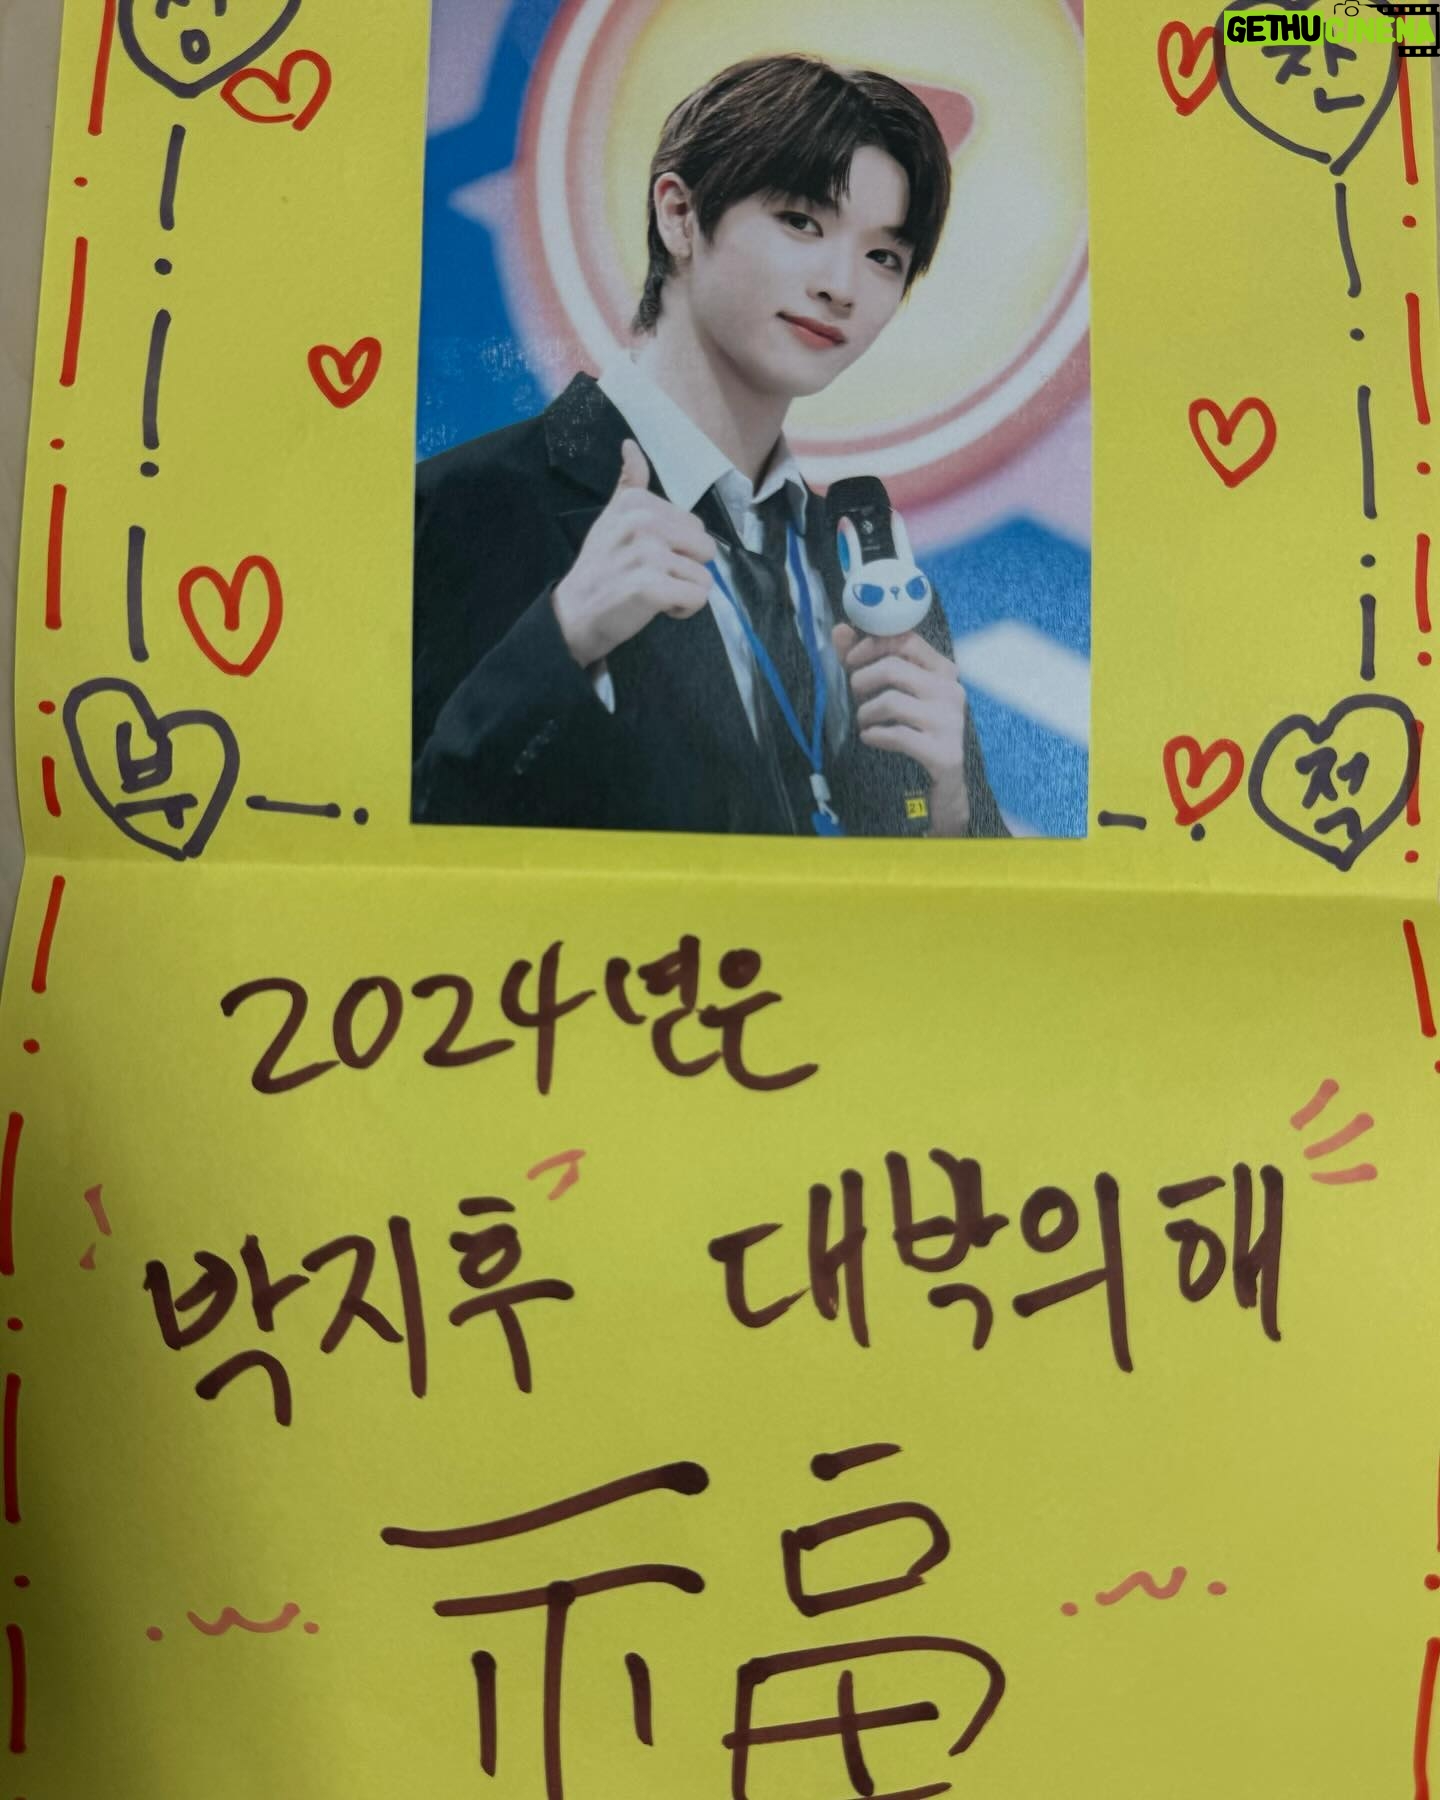 GETHUCINEMA
성 찬
21
부 적
2024년은
박지후 대박의해
福